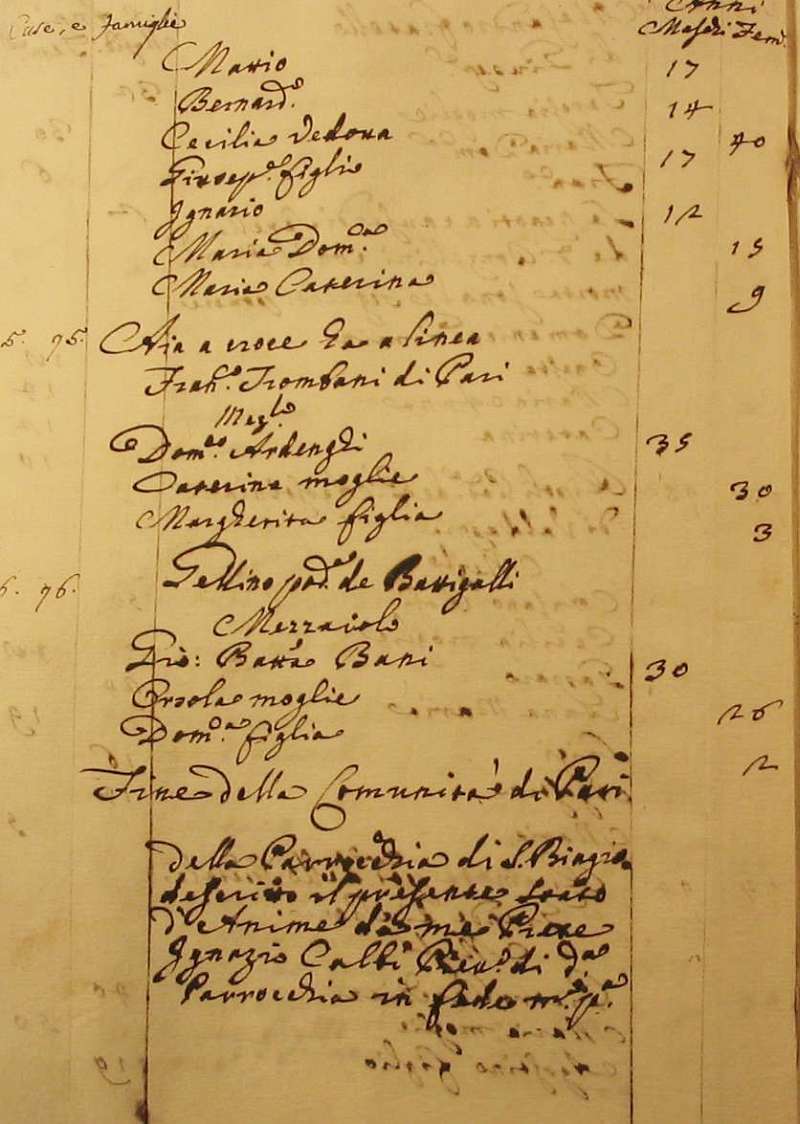 Case, e famiglie
Anni
Maschi Fem.
Mario 17
Bernard.º 14
Cecilia Vedova 40
Giusep.º figlio 17
Ignazio 12
Maria Dom.ca 15
Maria Caterina 9
5. 75. Aia a croce
Fran.º Trombani di Pari
Mez.lo
Dom.co Ardenghi 35
Caterina moglie 30
Margherita figlia 3
6. 76. pod.e de
Mezzaiolo
Gio: Batta Bani 30
Orsola moglie 26
Dom.ca figlia 2
Fine della Comunità di Pari
della Parrocchia di S. Biagio
descritto il presente stato
d'Anime da me Prete
Ignazio di d.a
Parrocchia in fede m. p.a